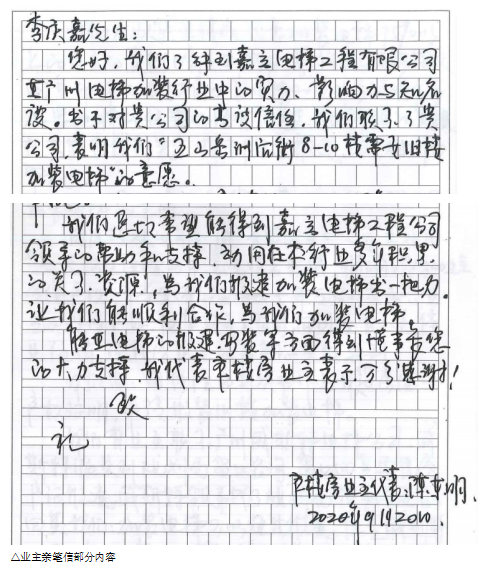 李庆嘉先生：
您好，我们了解到嘉立电梯工程有限公司
在广州电梯加装行业中的实力、影响力与知名
度。出于对贵公司的高度信任，我们联系了贵
公司，表明我们“五山岳洲信街8-10栋需要旧楼
加装电梯”的意愿。
我们迫切希望能得到嘉立电梯工程公司
领导的帮助和支持，动用在本行业多年积累
的关系、资源，为我们报建加装电梯出一把力。
让我们能顺利合作，为我们加装电梯。
能在电梯的报建、安装等方面得到懂事长您
的大力支持，我代表本楼房业主表示万分感谢！
致
礼
本楼房业主代表：陈英明
2020年9月20日
△业主亲笔信部分内容